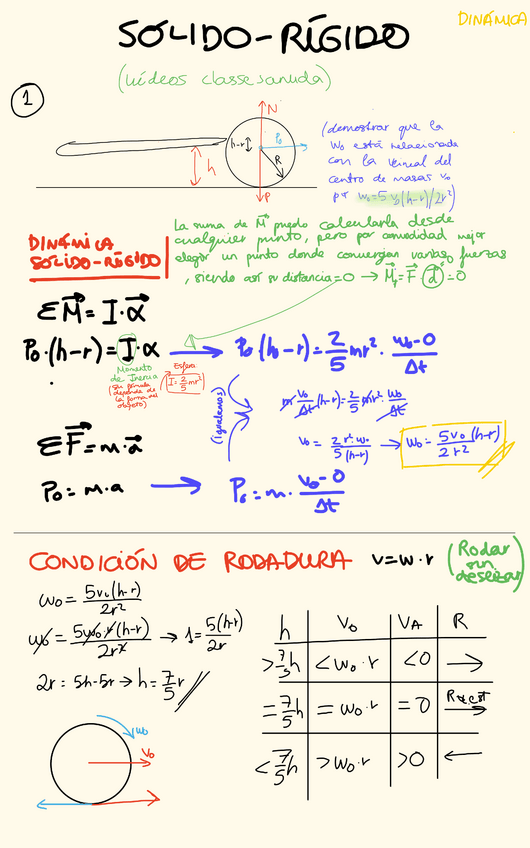 DINÁMICA
SÓLIDO-RÍGIDO
(vídeos classesanuda)
1
N
P₀
h-r
R
h
P
(demostrar que la
w₀ está relacionada
con la velocidad del
centro de masas v₀
por w₀=5v₀(h-r)/2r²)
La suma de M puedo calcularla desde
cualquier punto, pero por comodidad mejor
elegir un punto donde convergan varias fuerzas
, siendo así su distancia=0 → M⃗=F⃗·d⃗=0
DINÁMICA
SÓLIDO-RÍGIDO
ΣM⃗=I·α⃗
P₀·(h-r)=I·α → P₀(h-r)=2/5mr²·(w₀-0)/Δt
Momento
de Inercia
(su fórmula
depende de
la forma del
objeto)
Esfera
I=2/5mr²
(igualamos)
m v₀/Δt(h-r)=2/5mr²·w₀/Δt
v₀=2r²w₀/5(h-r) → w₀=5v₀(h-r)/2r²
ΣF⃗=m·a⃗
P₀=m·a → P₀=m·(v₀-0)/Δt
CONDICIÓN DE RODADURA v=w·r (Rodar
sin
deslizar)
w₀=5v₀(h-r)/2r²
w₀=5w₀·r(h-r)/2r² → 1=5(h-r)/2r
2r=5h-5r → h=7/5r
w₀
v₀
h V₀ VA R
>7/5h <w₀·r <0 →
=7/5h =w₀·r =0 R→
<7/5h >w₀·r >0 ←